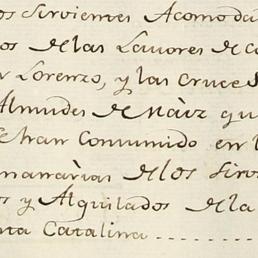 los Sirvientes Acomoda
os de las Lavores de
Lorenzo, y las Cruces
Almudes de Maiz qu
se han Consumido en l
manarias de los Sirv
os y Alquilados de la
nta Catalina